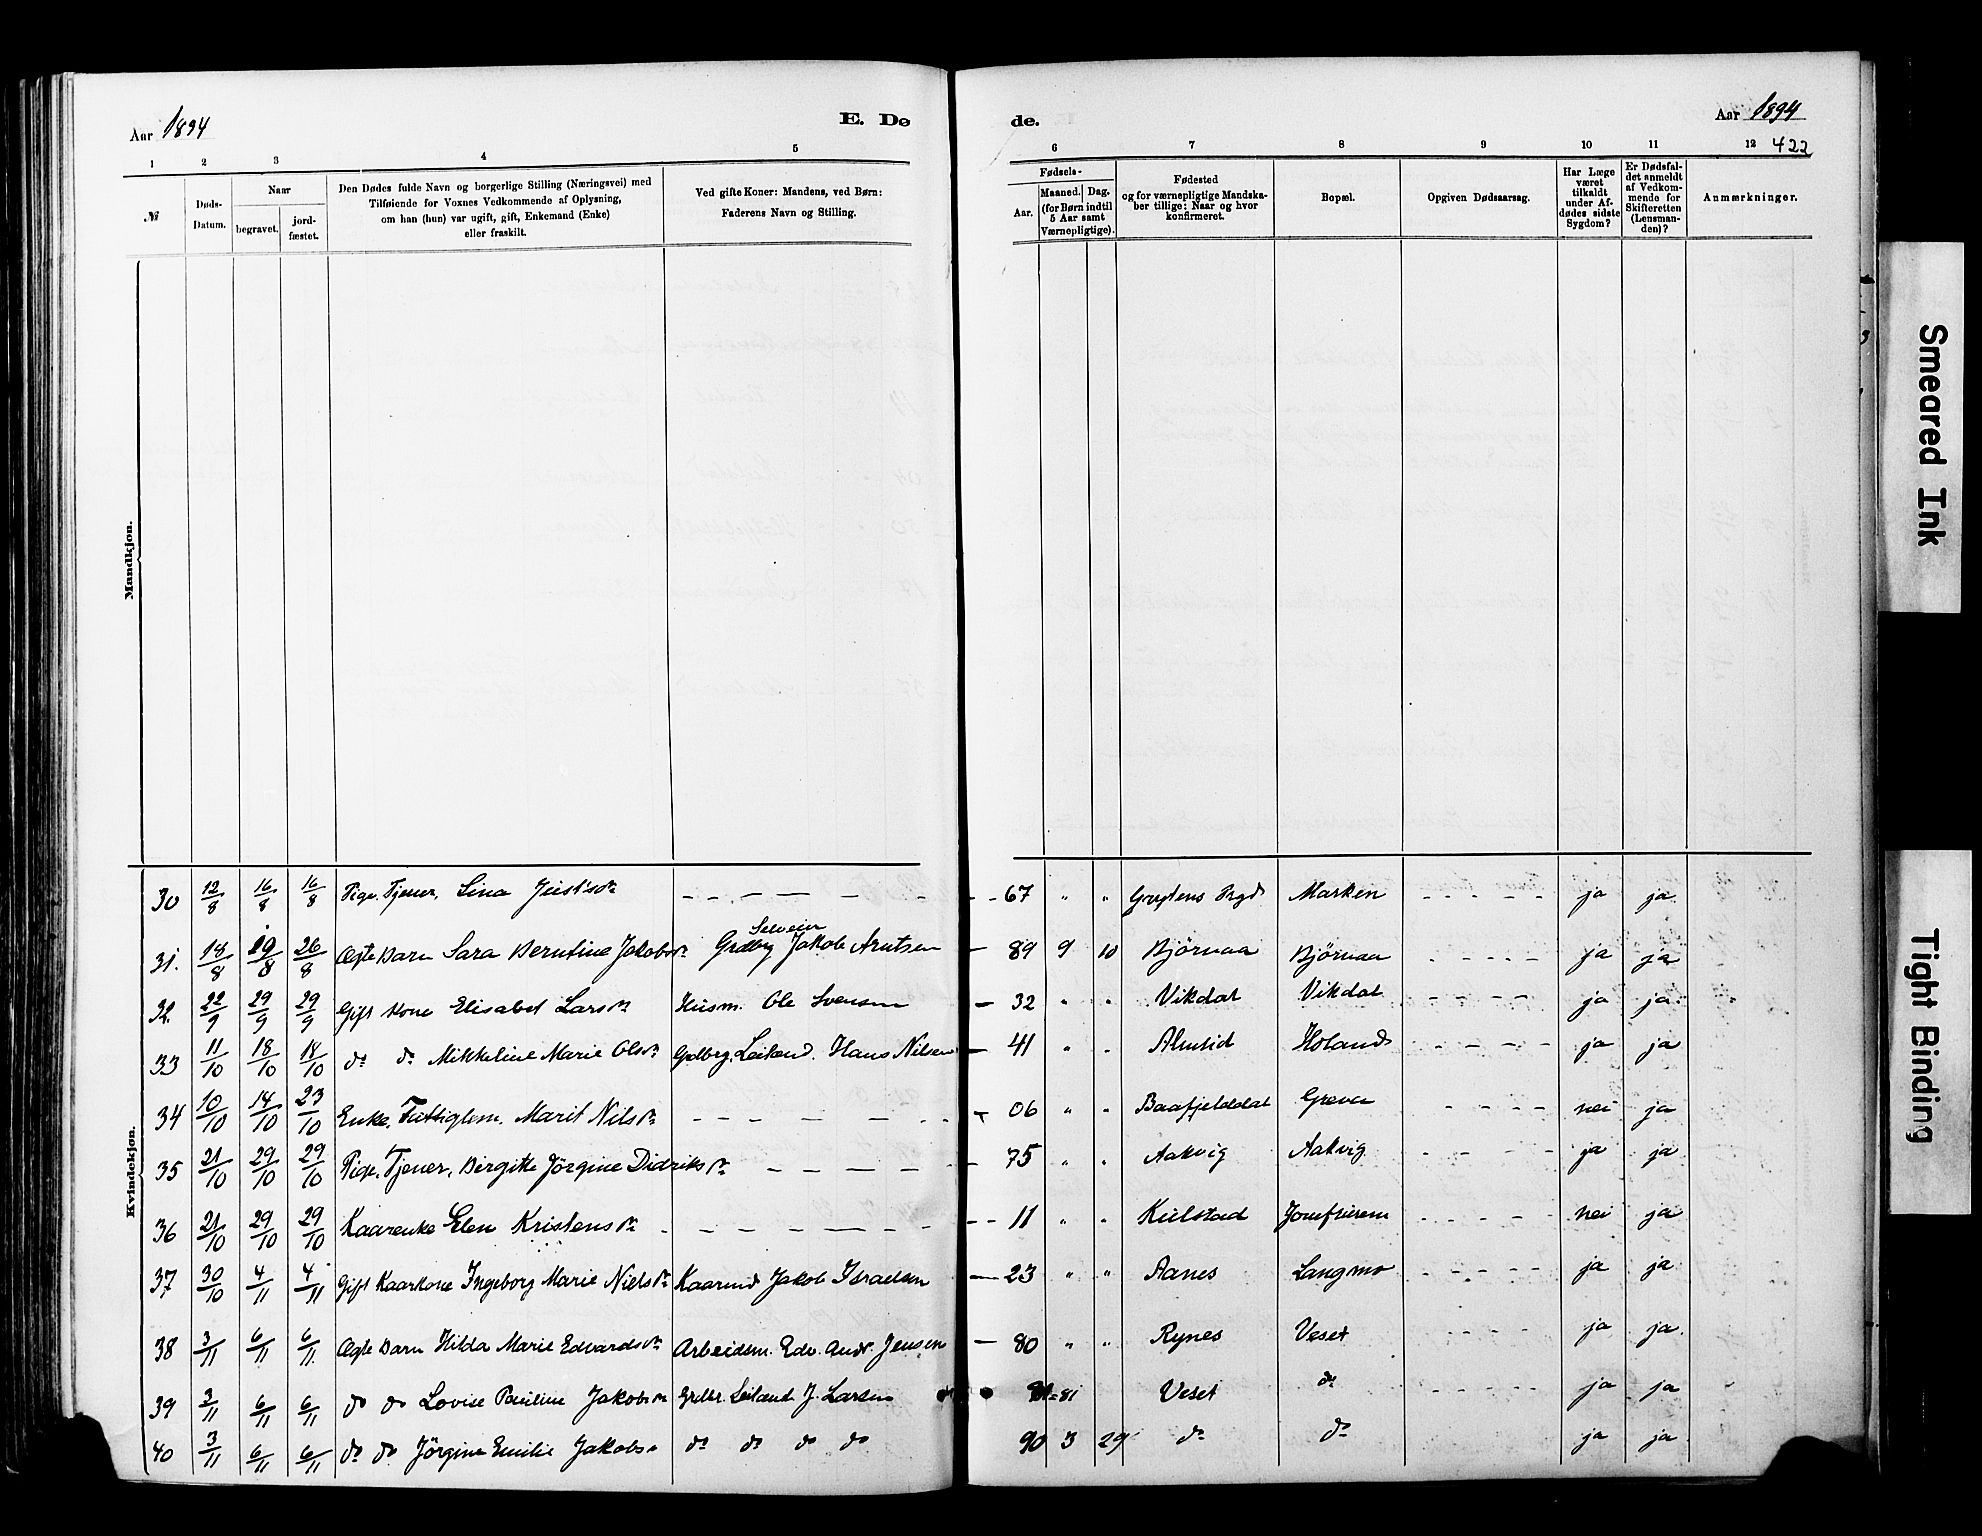 Aar 1894
E. Dø
de.
Aar 1894
422
1 2 3 4 5
6 7 8 9 10 11 12
№
Døds-
Datum.
Naar
begravet.
jord-
fæstet.
Den Dødes fulde Navn og borgerlige Stilling (Næringsvei) med
Tilføiende for Voxnes Vedkommende af Oplysning,
om han (hun) var ugift, gift, Enkemand (Enke)
eller fraskilt.
Ved gifte Koner: Mandens, ved Børn:
Faderens Navn og Stilling.
Fødsels-
Aar.
Maaned. Dag.
(for Børn indtil
5 Aar samt
Værnepligtige).
Fødested
og for værnepligtige Mandska-
ber tillige: Naar og hvor
konfirmeret.
Bopæl.
Opgiven Dødsaarsag.
Har Læge
været
tilkaldt
under Af-
dødes sidste
Sygdom?
Er Dødsfal-
det anmeldt
af Vedkom-
mende for
Skifteretten
(Lensman-
den)?
Anmærkninger.
Mandkjøn.
Kvindekjøn.
30 12/8 16/8 16/8 Pige. Tjener, Sina - - - - - 67 " " Marken - - - - ja ja.
31. 18/8 19/8 26/8 Ægte Barn Sara Berntine Jakobsdr Selveier
Grdbrg Jakob Arntsen - 89 9 10 Bjørnaa Bjørnaa - - - - ja ja
32. 22/9 29/9 29/9 Gift Kone Elisabet Larsdr Husm. Ole Svensen - 32 " " Vikdal Vikdal - - - - ja ja
33 11/10 18/10 18/10 do do Mikkeline Marie Olsdr Gdbrg. Leilænd. Hans Nilsen - 41 " " Alsusid Holand - - - - ja ja
34 10/10 14/10 23/10 Enke. Fattiglem. Marit Nilsdr - - - - - 06 " " Baafjelddal Greva - - - - nei ja
35 21/10 29/10 29/10 Pige, Tjener, Birgitte Jörgine Didriksdr - - - - - 75 " " Aakvig Aakvig - - - - ja ja
36 21/10 29/10 29/10 Kaarenke Elen Kristensdr - - - - - 11 " " Kulstad - - - - nei ja
37 30/10 4/11 4/11 Gift Kaarkone Ingeborg Marie Nielsdr Kaarmd Jakob Israelsen - 23 " " Aanes Langmo - - - - ja ja
38 3/11 6/11 6/11 Ægte Barn Hilda Marie Edvardsdr Arbeidsm. Edv. Andr. Jensen - 80 " " Rynes Veset - - - - ja ja.
39 3/11 6/11 6/11 do do Lovise Pauline Jakobsdr Grdbr. Leilænd J. Larsen 81 Veset do - - - - ja ja
40 3/11 6/11 6/11 do do Jörgine Emilie Jakobs do do do do 90 3 29 do do ja ja
Smeared Ink
Tight Binding